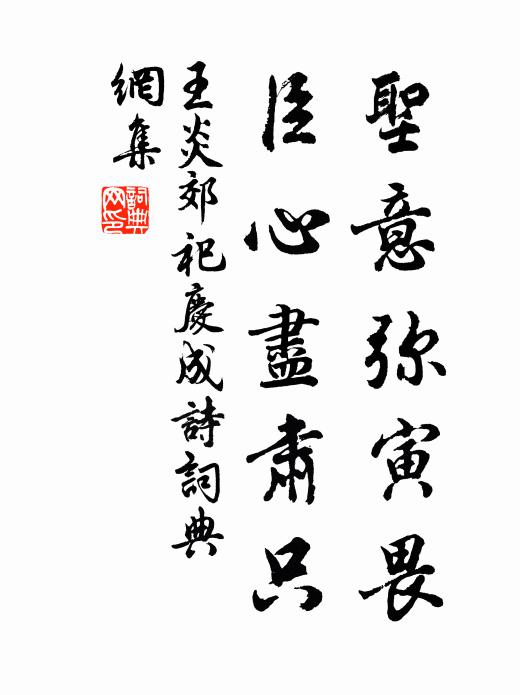 聖意弥寅畏
臣心盡肅只
王炎郊祀慶成詩詞典
網集
詞典網印